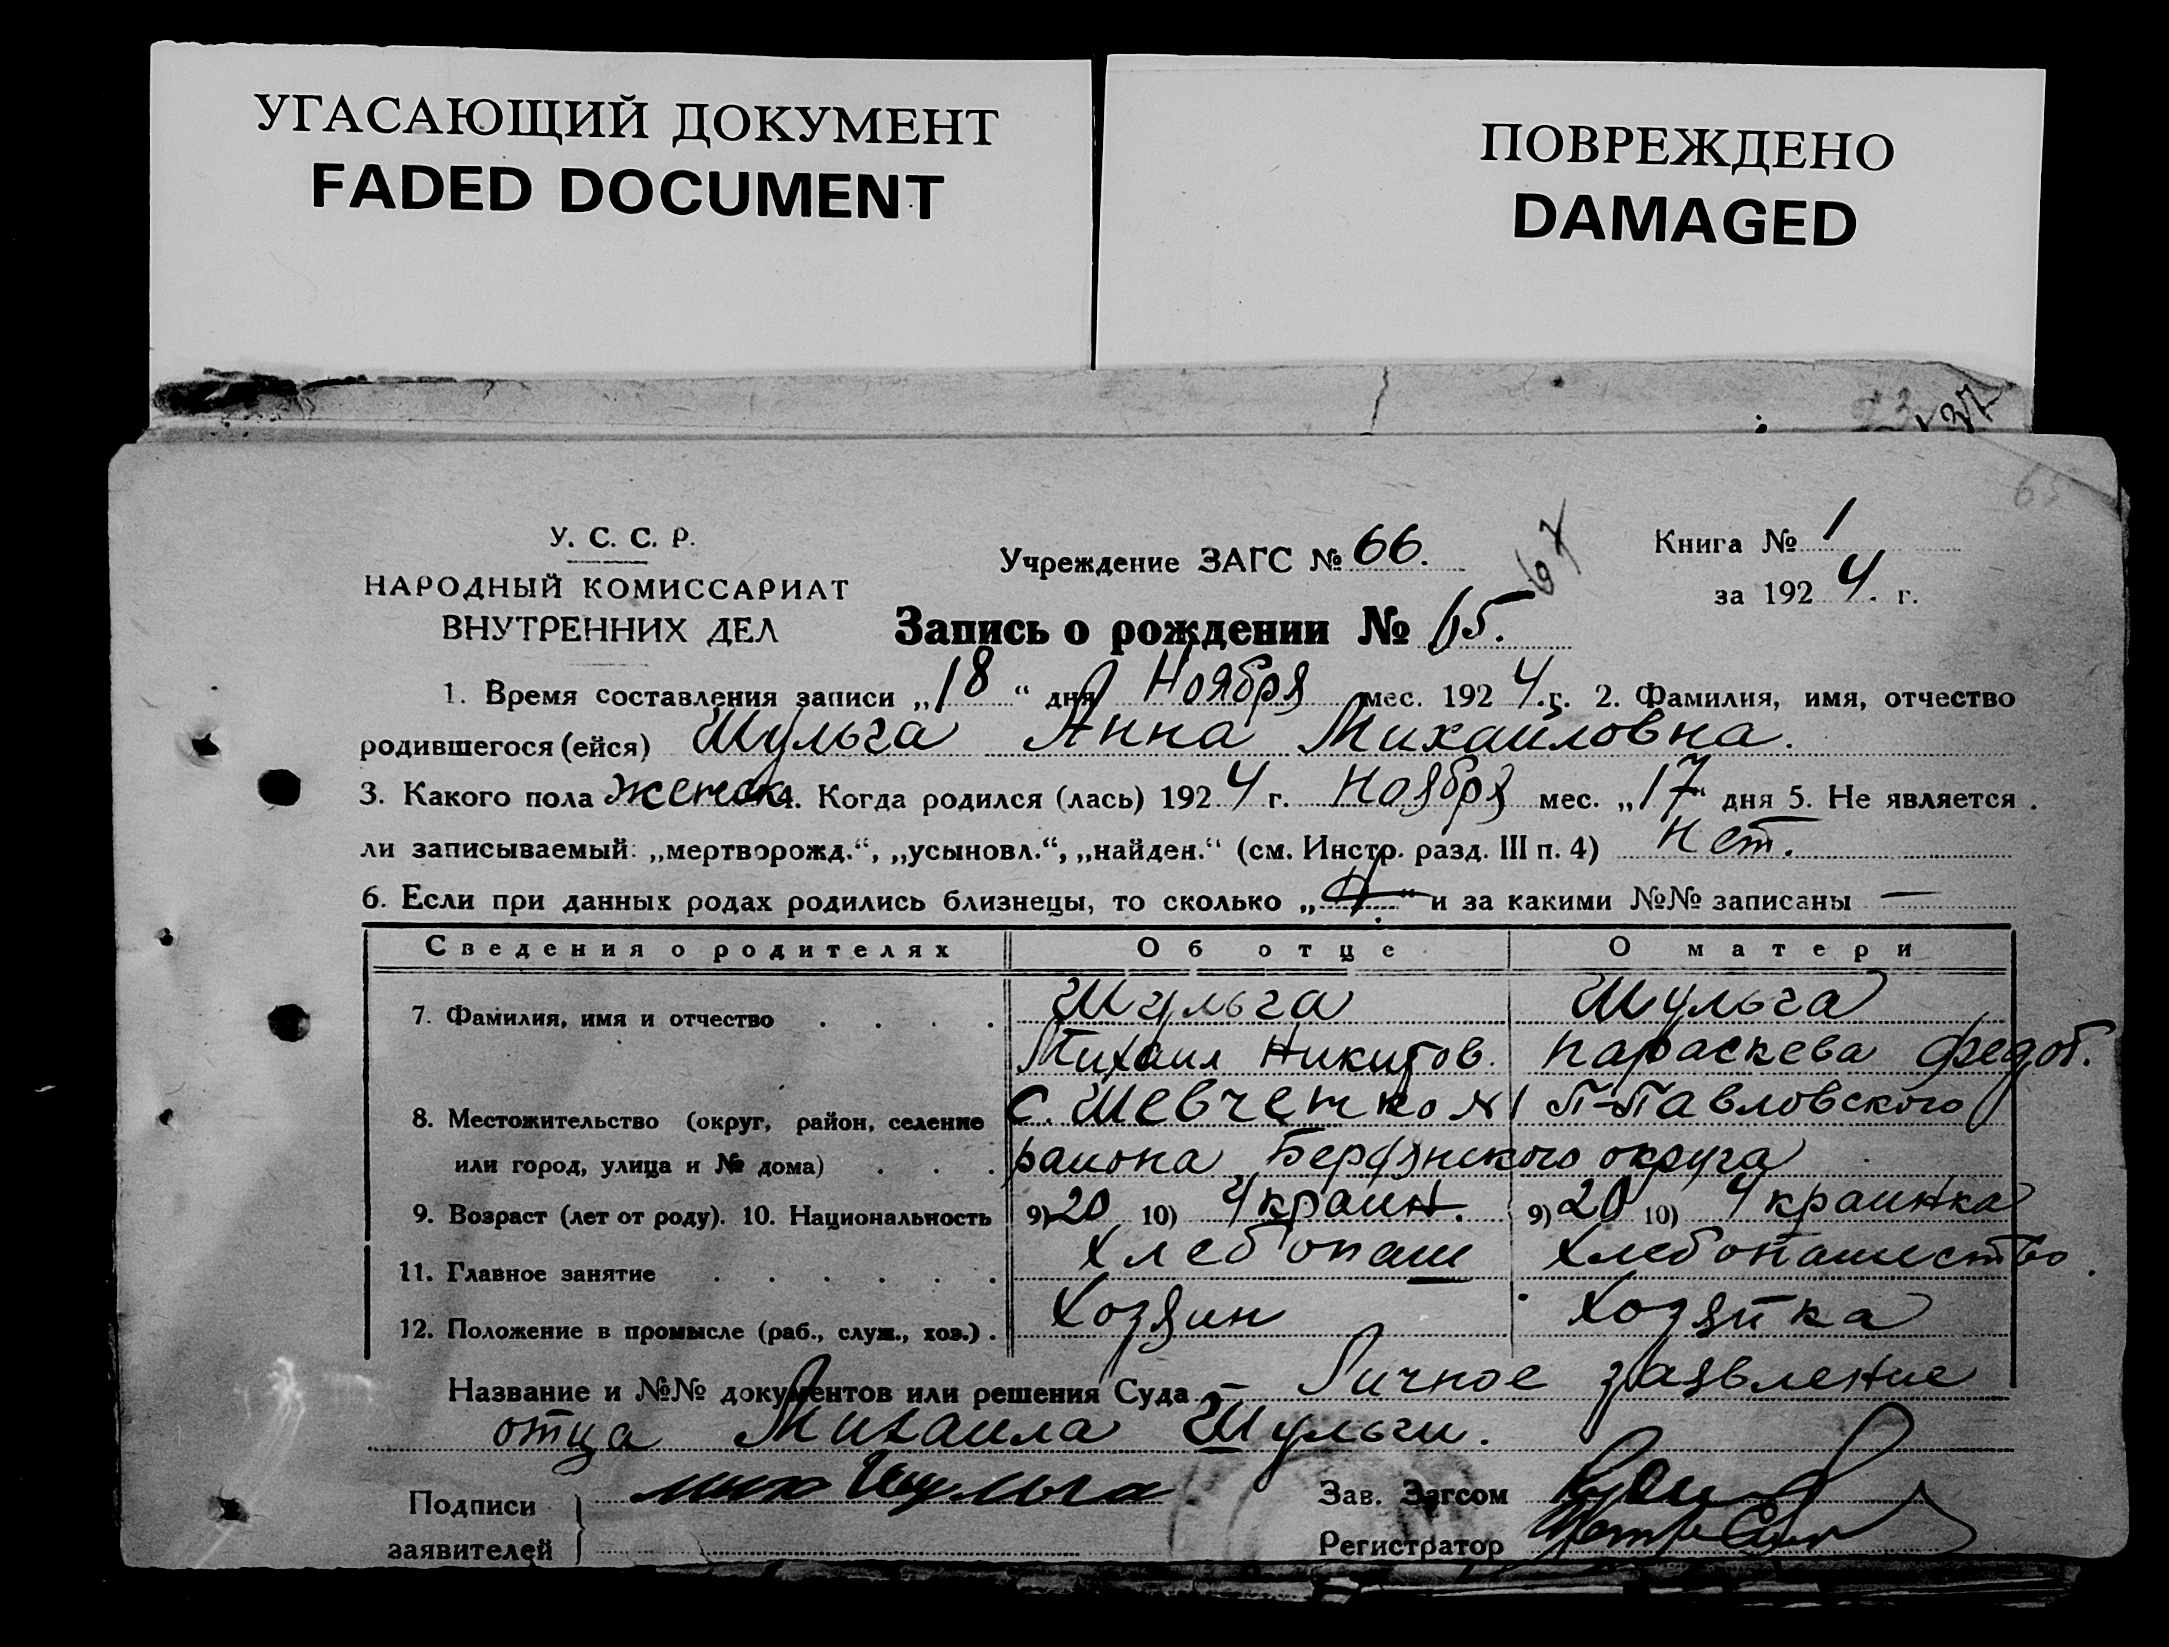 УГАСАЮЩИЙ ДОКУМЕНТ
FADED DOCUMENT
ПОВРЕЖДЕНО
DAMAGED
137
65
У. С. С. Р.
НАРОДНЫЙ КОМИССАРИАТ
ВНУТРЕННИХ ДЕЛ
Учреждение ЗАГС № 66.
67
Книга № 1
за 1924. г.
Запись о рождении № 65.
1. Время составления записи „18“ дня Ноября мес. 1924.г. 2. Фамилия, имя, отчество
родившегося (ейся) Шульга Анна Михайловна.
3. Какого пола женск 4. Когда родился (лась) 1924 г. Ноября мес. „17“ дня 5. Не является
ли записываемый: „мертворожд.“, „усыновл.“, „найден.“ (см. Инстр. разд. III п. 4) Нет.
6. Если при данных родах родились близнецы, то сколько „ “ и за какими №№ записаны —
Сведения о родителях Об отце О матери
7. Фамилия, имя и отчество . . . . Шульга Шульга
Михаил Никитов. Параскева Федот.
8. Местожительство (округ, район, селение с. Шевченко №1 П-Павловского
или город, улица и № дома) . . . района Бердянского округа
9. Возраст (лет от роду). 10. Национальность 9) 20 10) Украин. 9) 20 10) Украинка
11. Главное занятие . . . . . . Хлебопаш Хлебопашество.
12. Положение в промысле (раб., служ., хоз.) . Хозяин Хозяйка
Название и №№ документов или решения Суда — Личное заявление
отца Михаила Шульги.
Подписи
заявителей
мих Шульга
Зав. Загсом
Регистратор